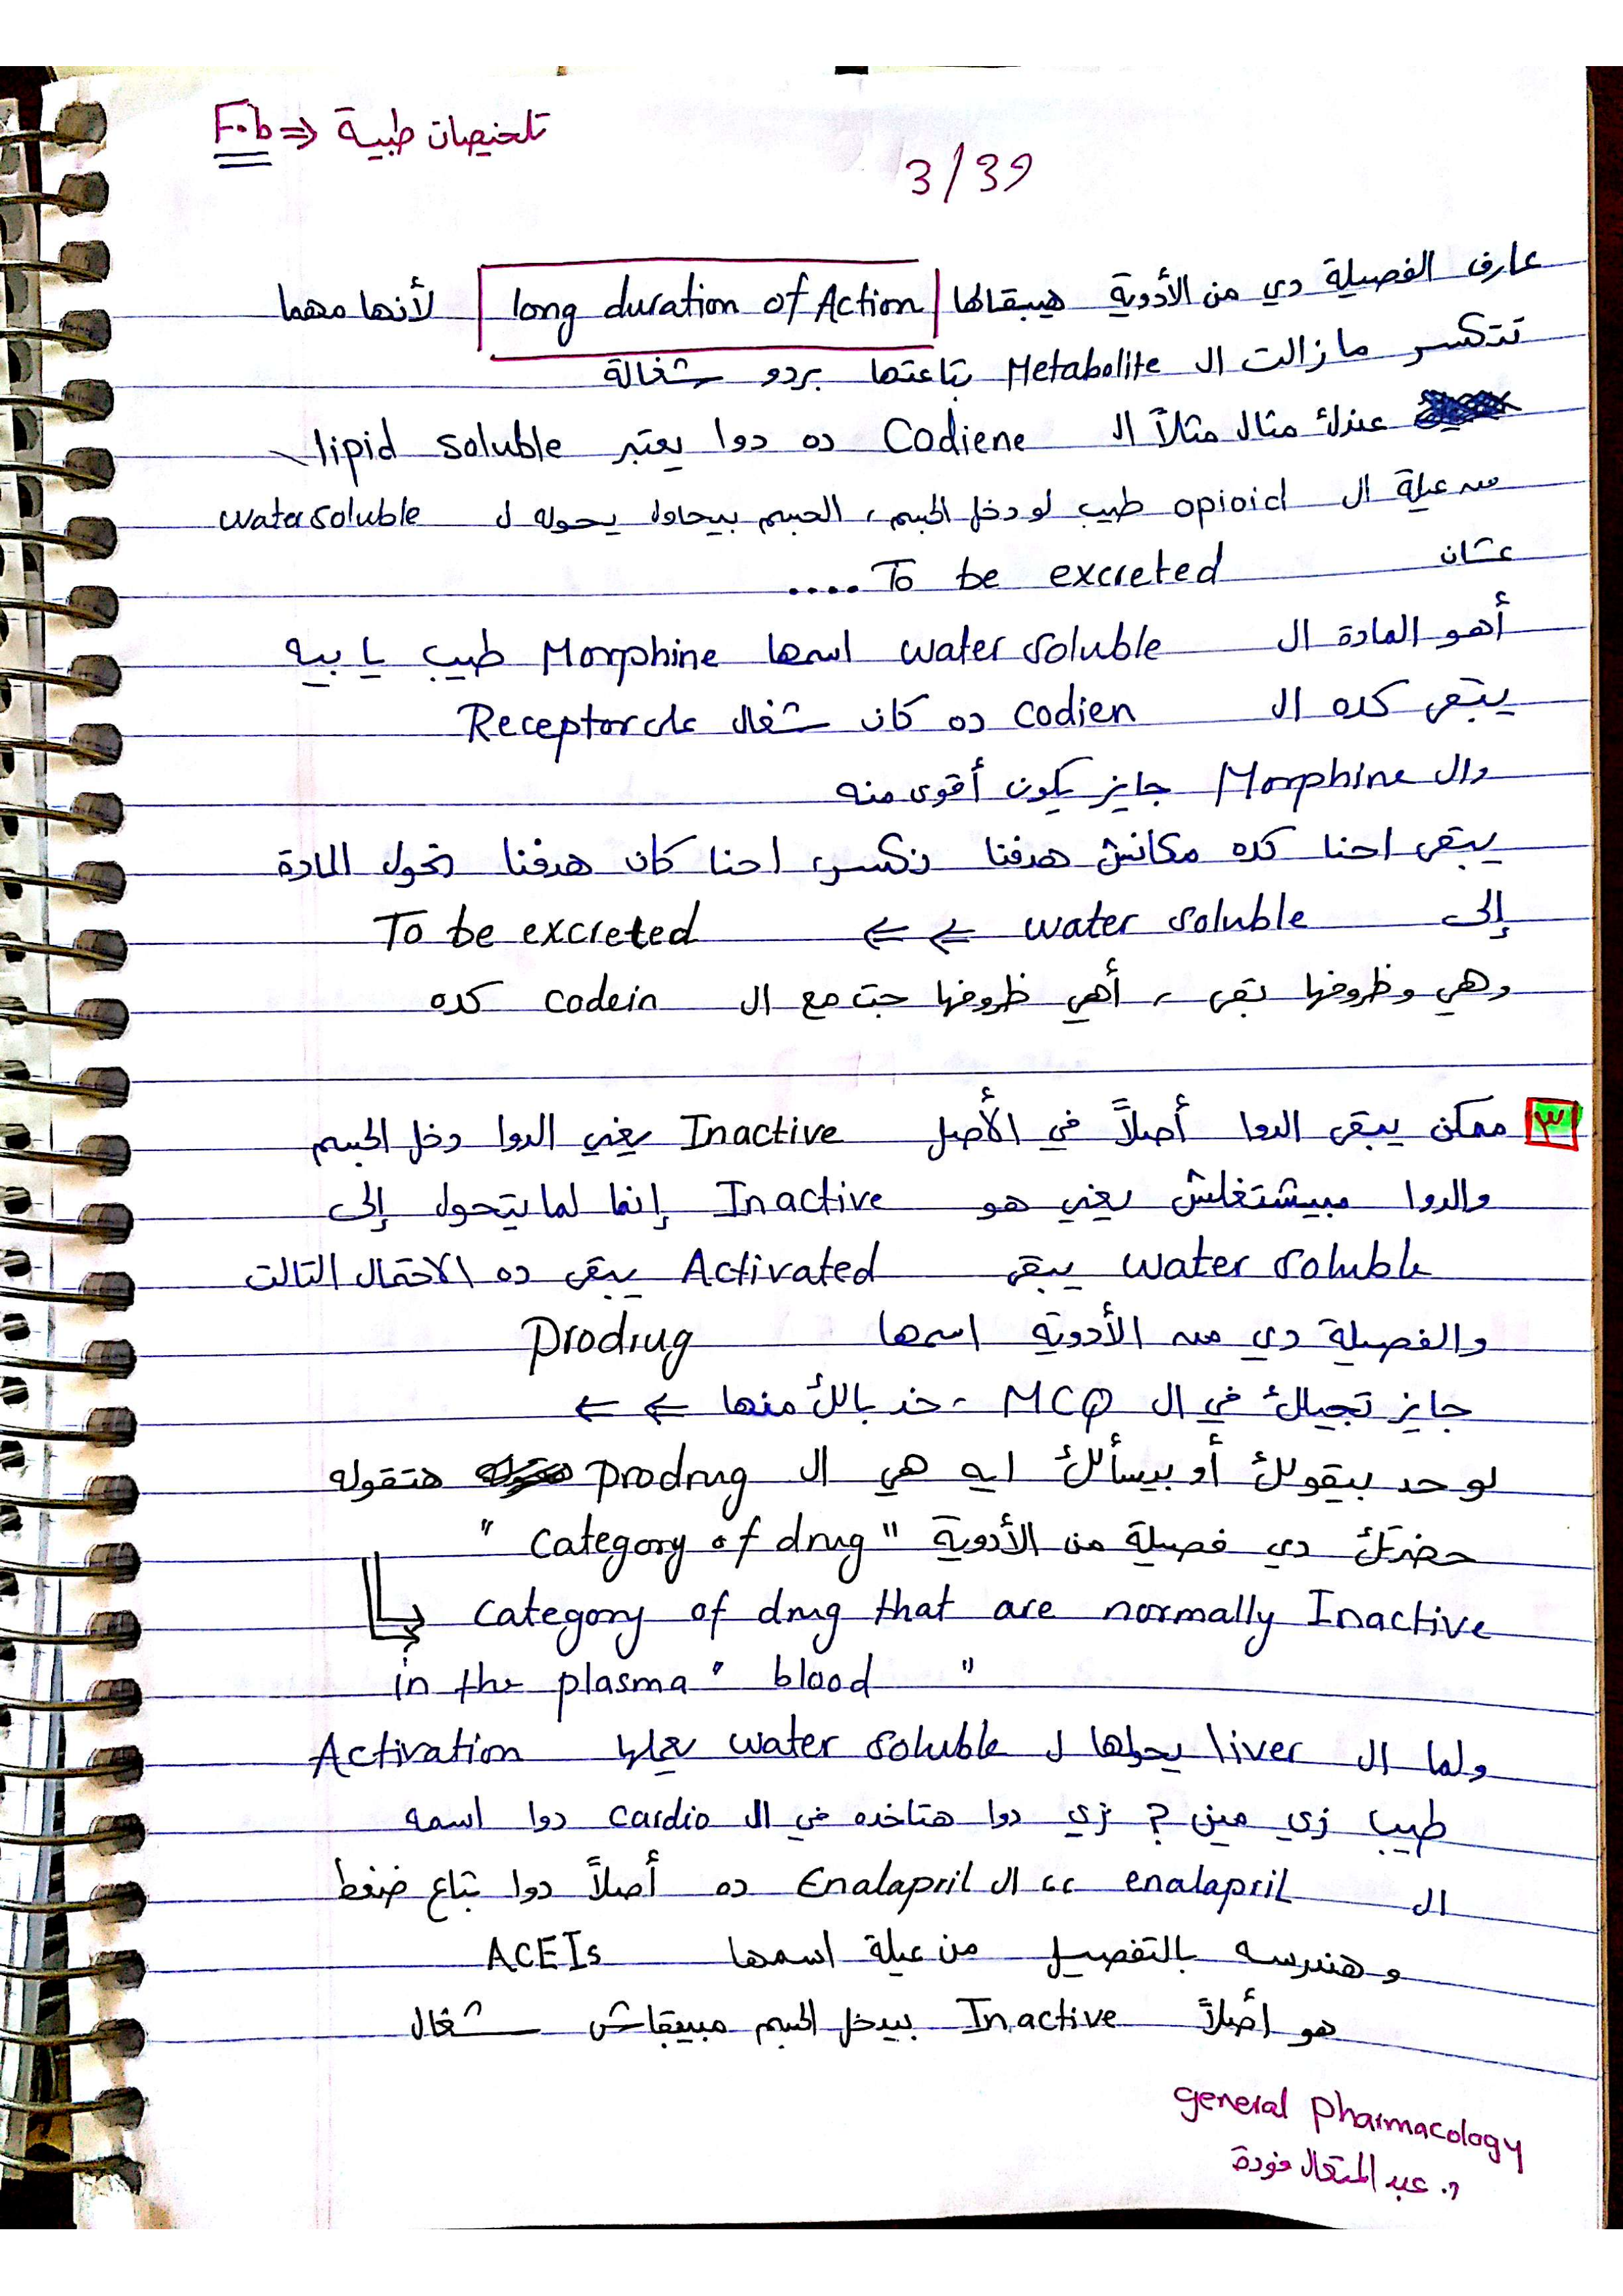 تلخيصات طبية ⇐ F.b
3/39
عارف الفصيلة دي من الأدوية هيبقالها long duration of Action لأنها مهما
تتكسر مازالت ال Metabolite بتاعتها بردو شغالة
عندك مثال مثلاً ال Codiene ده دوا يعتبر lipid soluble
من عيلة ال opioid طيب لو دخل الجسم، الجسم بيحاول يحوله ل water soluble
عشان To be excreted ....
أهو المادة ال water soluble اسمها Morphine طيب يا بيه
يبقى كده ال codien ده كان شغال على Receptor
وال Morphine جايز يكون أقوى منه
يبقى احنا كده مكانش هدفنا نكسر، احنا كان هدفنا نحول المادة
إلى water soluble ⇐ ⇐ To be excreted
وهي وظروفها بقى، أهي ظروفها جت مع ال codein كده
٣ ممكن يبقى الدوا أصلاً في الأصل Inactive يعني الدوا دخل الجسم
والدوا مبيشتغلش يعني هو Inactive إنما لما يتحول إلى
water soluble يبقى Activated يبقى ده الاحتمال التالت
والفصيلة دي من الأدوية اسمها prodrug
جايز تجيلك في ال MCQ، خد بالك منها ← ←
لو حد بيقولك أو بيسألك ايه هي ال prodrug هتقوله
حضرتك دي فصيلة من الأدوية "category of drug"
category of drug that are normally Inactive
in the plasma "blood"
ولما ال liver يحولها ل water soluble يعملها Activation
طيب زي مين ؟ زي دوا هتاخده في ال cardio دوا اسمه
ال enalapril ،، ال Enalapril ده أصلاً دوا بتاع ضغط
وهندرسه بالتفصيل من عيلة اسمها ACEIs
هو أصلاً Inactive بيدخل الجسم مبيبقاش شغال
general pharmacology
د. عبد المتعال فودة